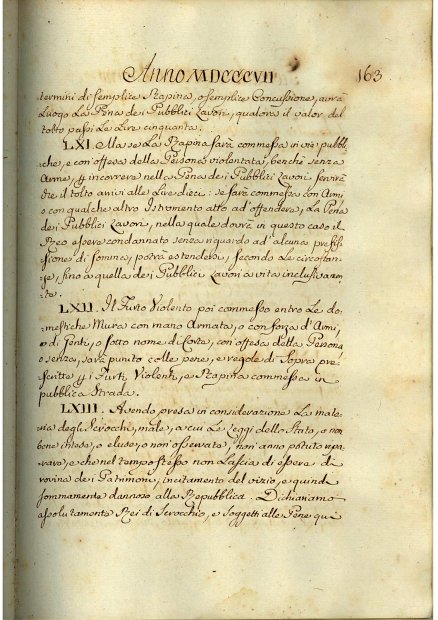 Anno MDCCCVII 163
termini di semplice Rapina, o semplice Concussione, avrà
Luogo La Pena de i Pubblici Lavori, qualora il valor del
tolto passi Le Lire cinquanta.
LXI. Ma se La Rapina sarà commessa in vie pubbli-
che, e con offesa della Persona violentata, benchè senza
Arme, incorrere nella Pena de i Pubblici Lavori
che il tolto arrivi alle Lire dieci. Se sarà commessa con Armi,
o con qualche altro Istromento atto ad offendere, La Pena
de i Pubblici Lavori, nella quale dovrà in questo caso il
Reo essere condannato senza riguardo ad alcuna prefis-
sione di somma, potrà estendersi, secondo Le circostan-
ze, sino a quella de i Pubblici Lavori a vita inclusivamen-
te.
LXII. Il Furto Violento poi commesso entro Le do-
mestiche Mura con mano Armata, o con forza d'Armi,
e di Genti, o sotto nome di Corte, con offesa della Persona
o senza, sarà punito colle pene, e regole di Sopra pre-
scritte i Furti Violenti, e Rapina commessa in
pubblica Strada.
LXIII. Avendo presa in considerazione La mate-
ria degli Scrocchi, male, a cui Le Leggi dello Stato, o non
bene intese, o eluse, o non osservate, non anno potuto ripa-
rare, e che nel tempo stesso non Lascia di essere di
rovina de i Patrimoni, incitamento del vizio, e quindi
sommamente dannoso alla Repubblica. Dichiariamo
assolutamente Rei di Scrocchio, e Soggetti alle Pene qui